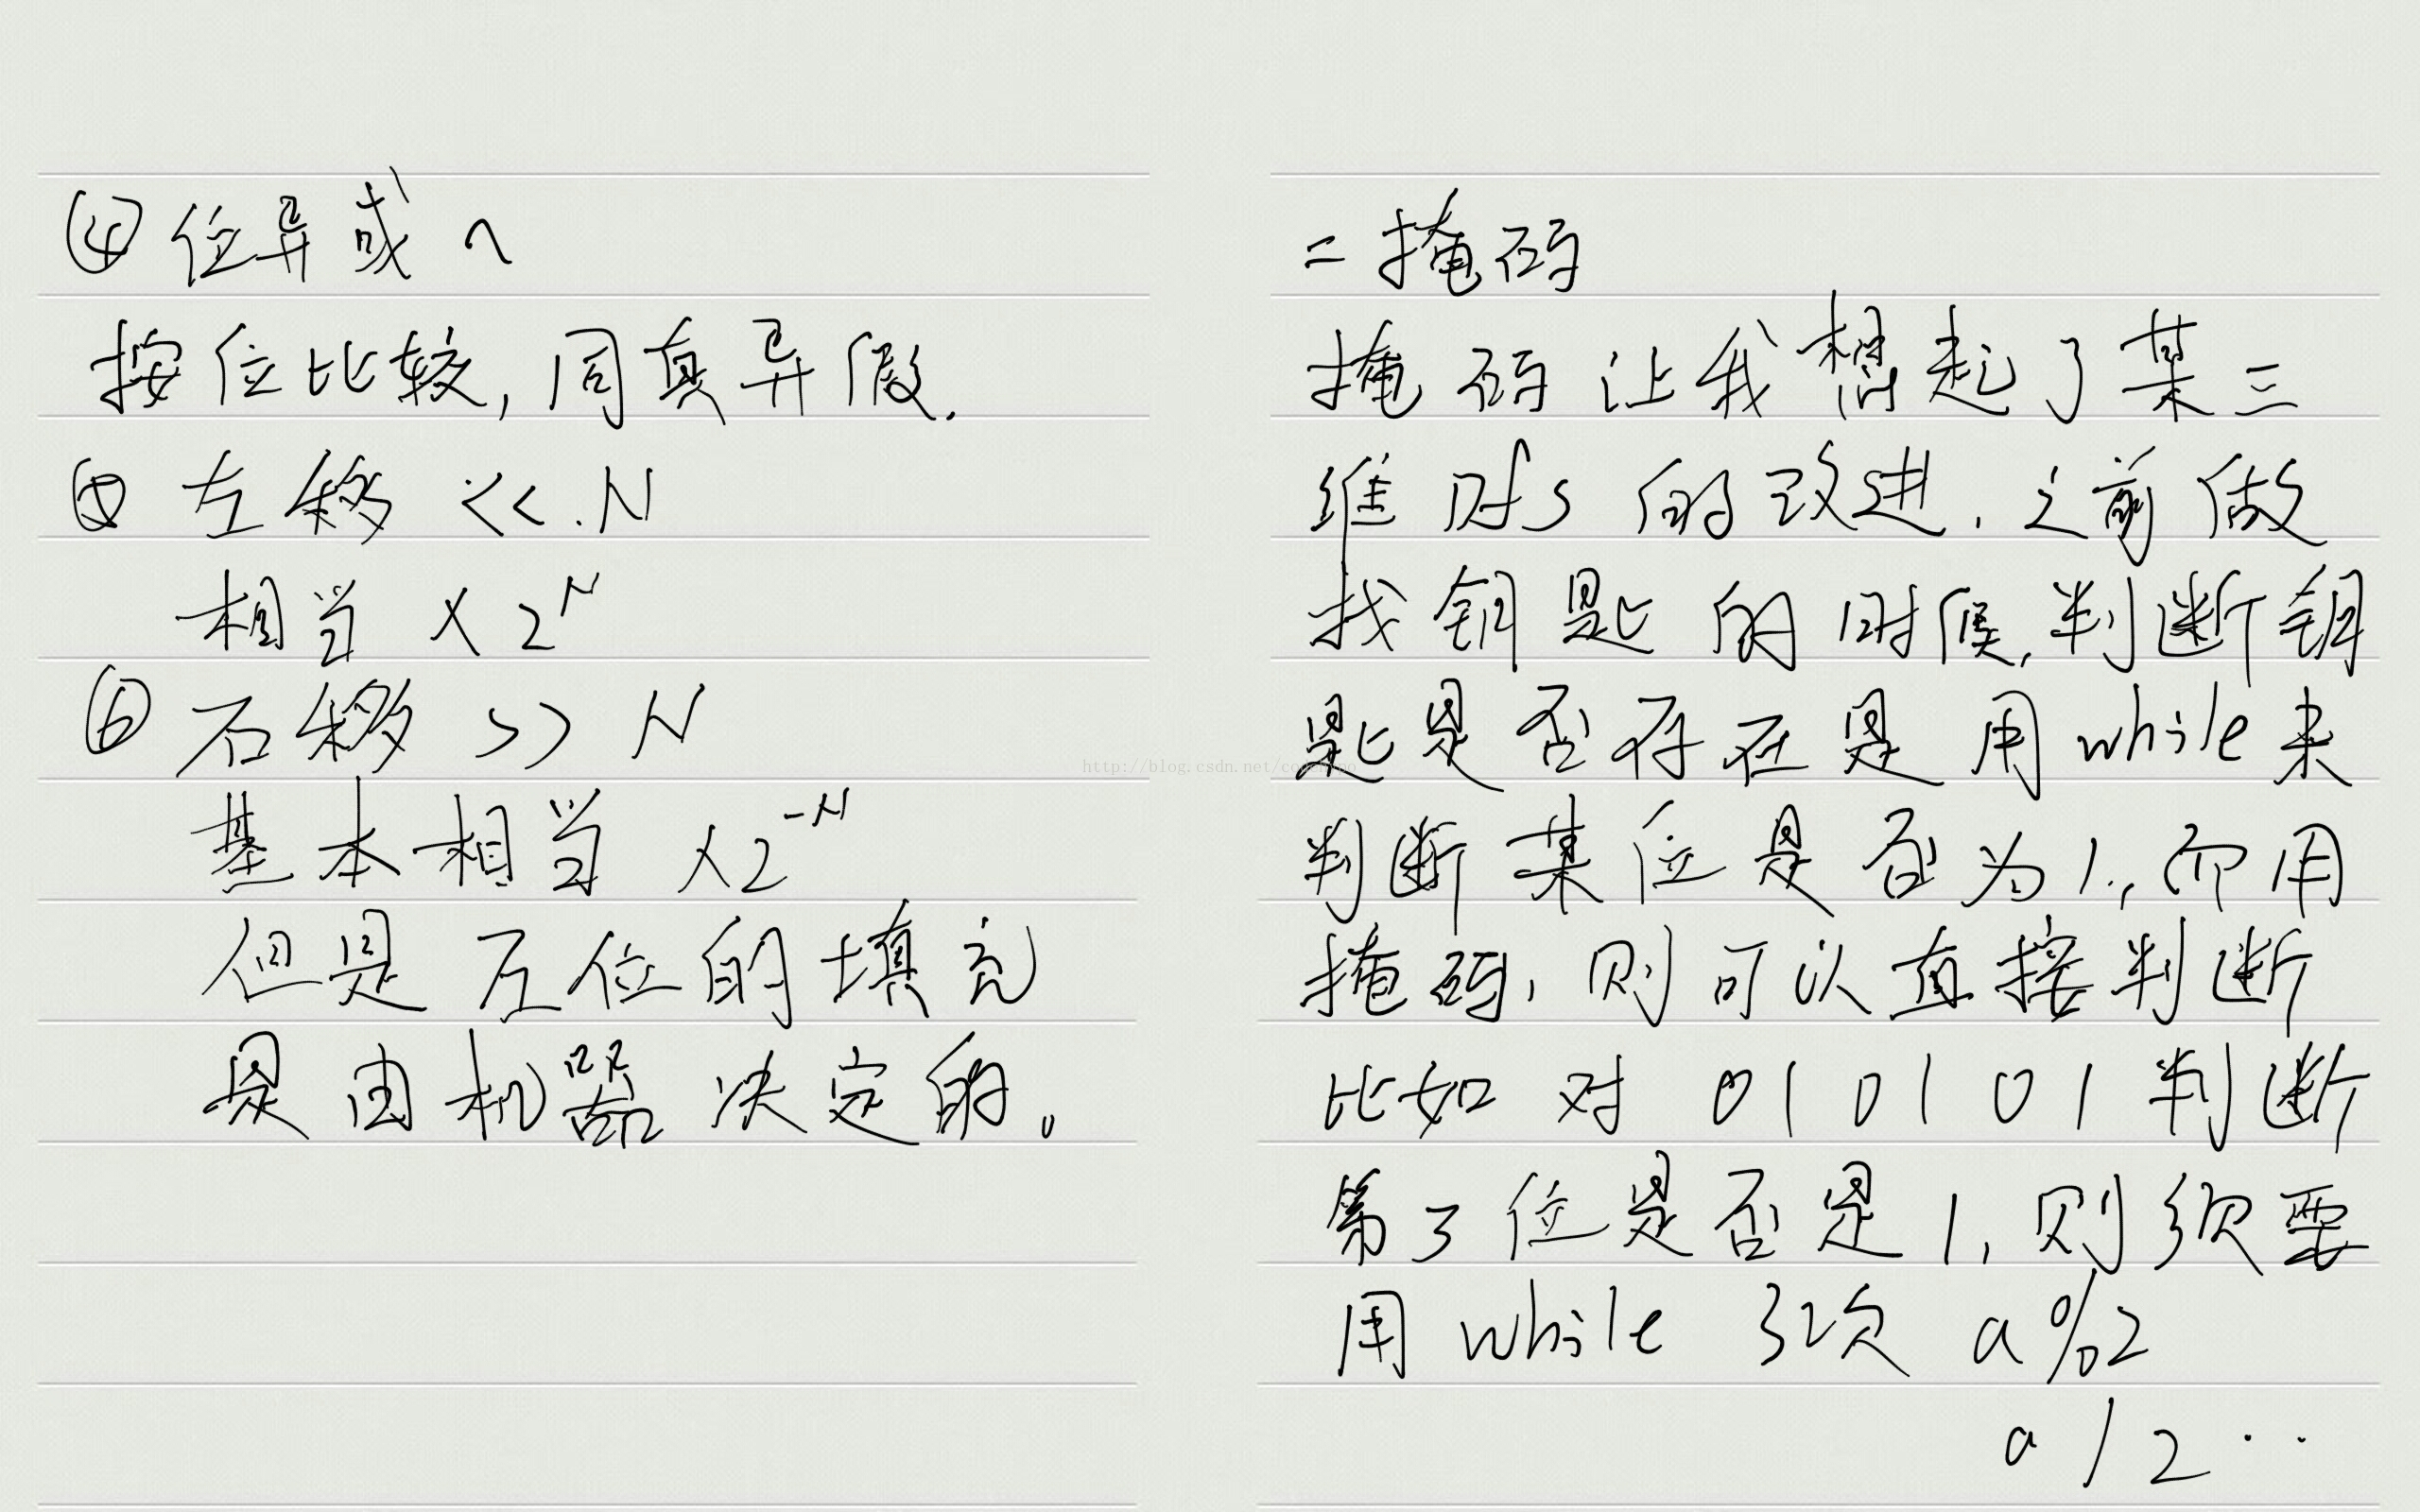 ④位异或 ^
按位比较,同真异假.
左移 <<.N
相当 ×2^N
⑥右移 >> N
基本相当 ×2^-N
但是左位的填充
是由机器决定的。
二掩码
掩码让我想起了某三
维 bfs 的改进.之前做
找钥匙的时候,判断钥
匙是否存在是用while来
判断某位是否为1.,而用
掩码,则可以直接判断
比如对 010101判断
第3位是否是1,则须要
用while 3次 a%2
a/2··
http://blog.csdn.net/